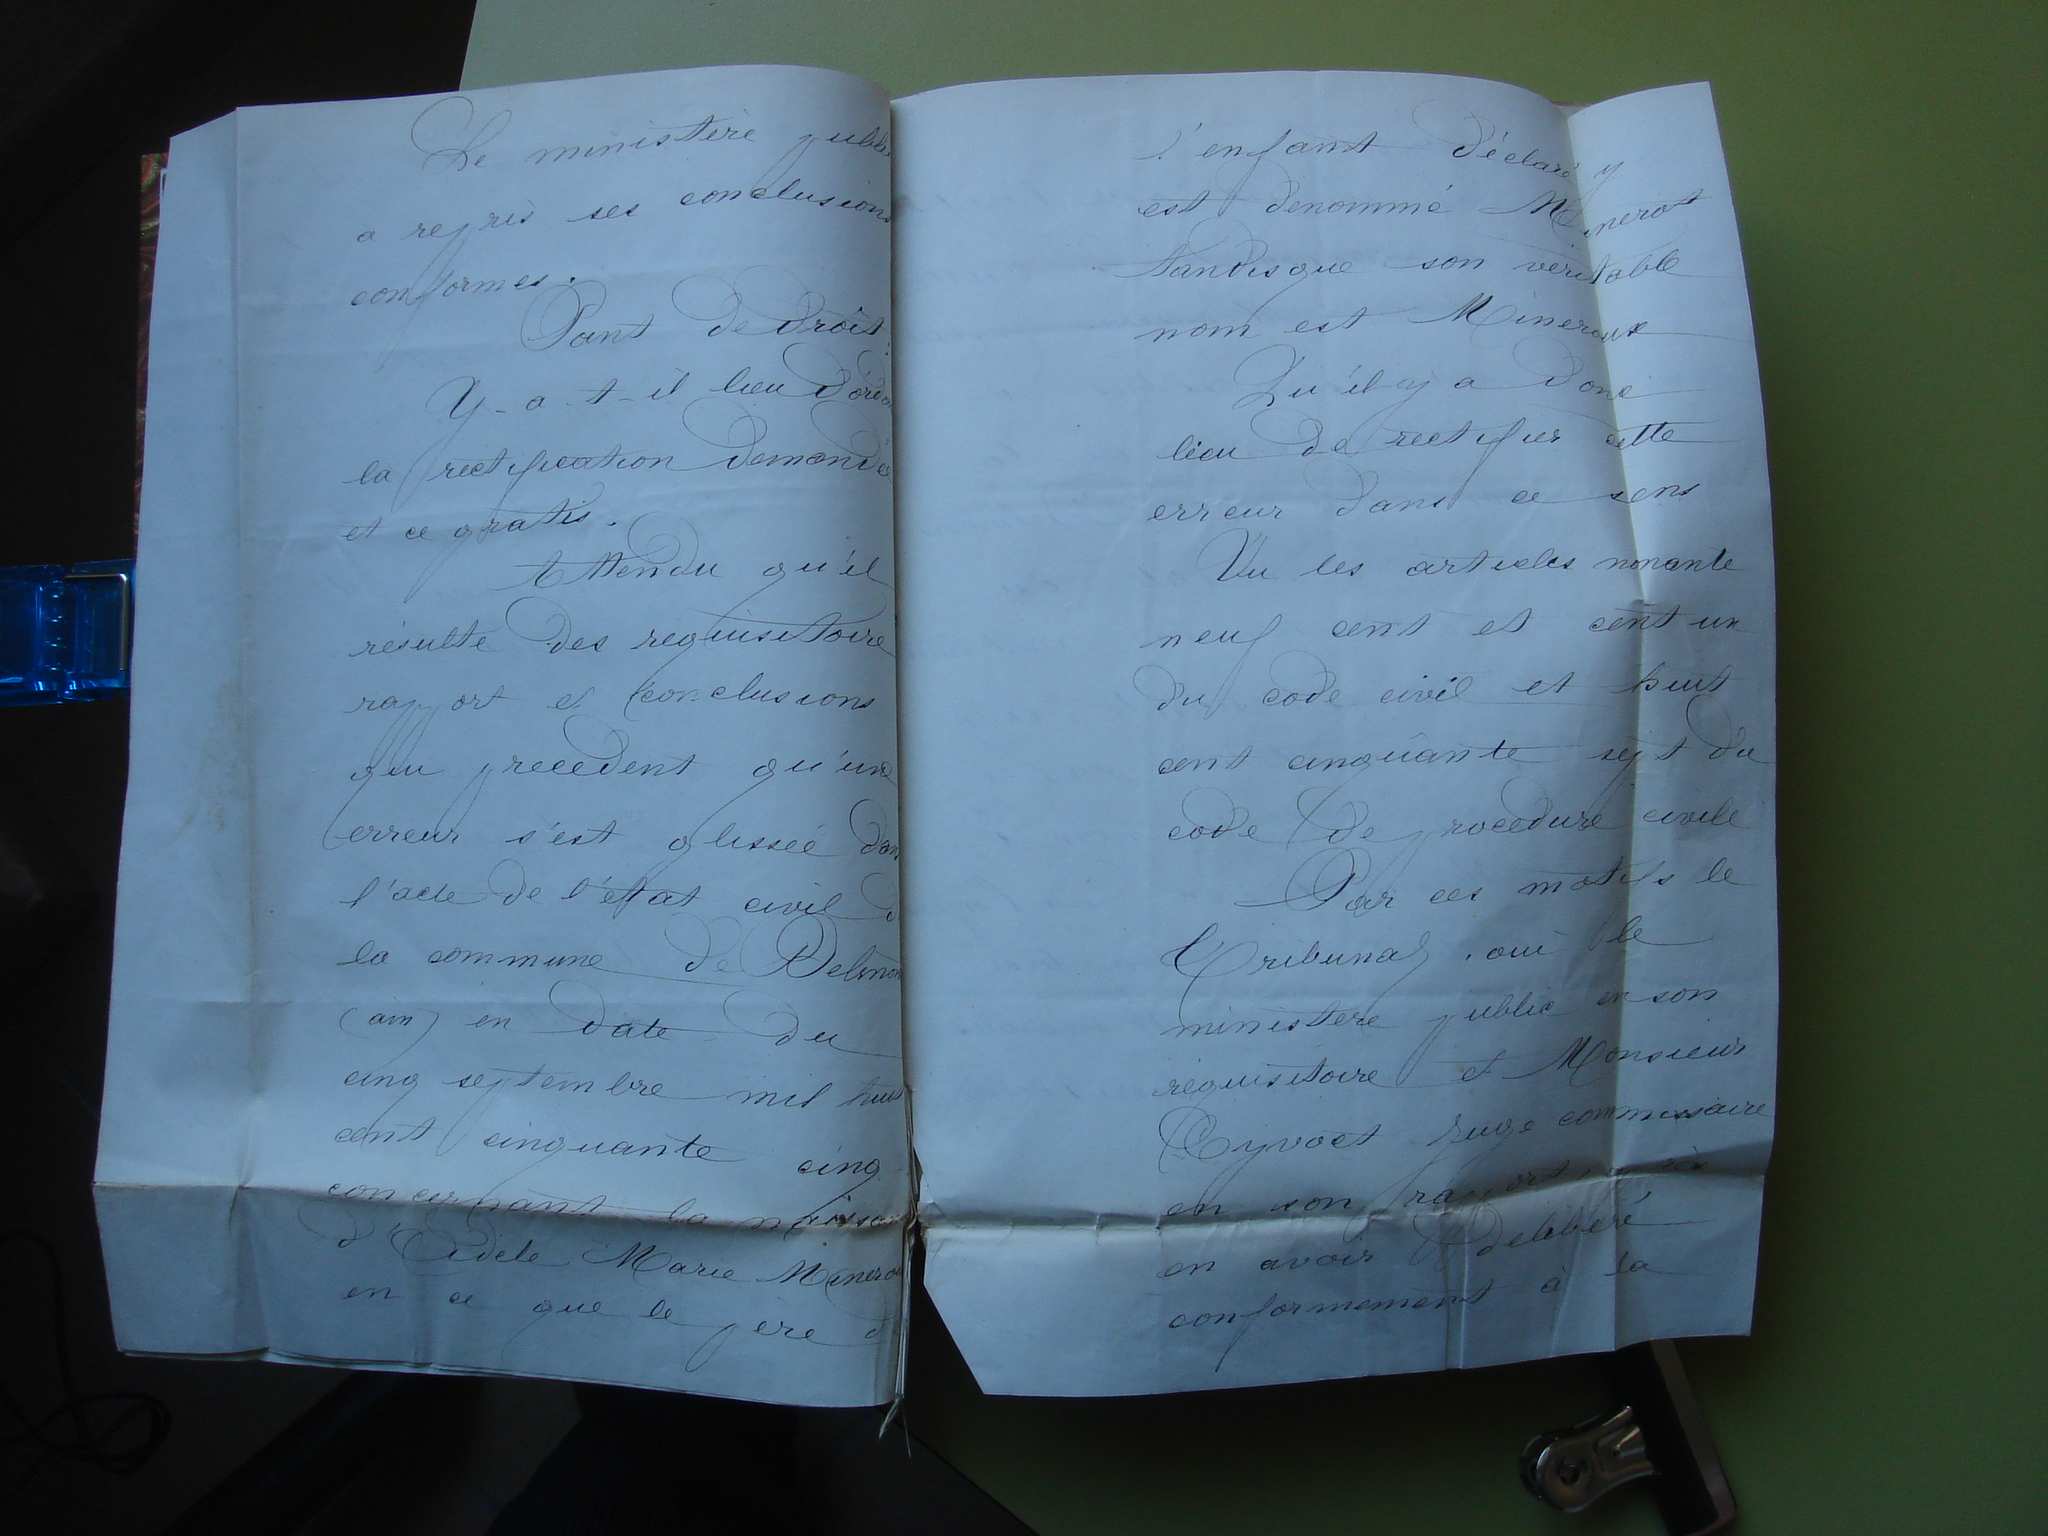 Le ministère public
a repris ses conclusions
conformes.
Point de droit:
Y-a-t-il lieu d'ordo
la rectification demandée
et ce gratis.
Attendu qu'il
résulte des requisitoire
rapport et conclusions
qui precedent qu'une
erreur s'est glissée dans
l'acte de l'état civil d
la commune de Belmon
(ain) en date du
cinq septembre mil huit
cent cinquante cinq
concernant la naissan
d'Adèle Marie Minero
en ce que le père d
l'enfant déclaré y
est denommé Minerot
tandisque son veritable
nom est Mineroux
Qu'il y a donc
lieu de rectifier cette
erreur dans ce sens
Vu les articles nonante
neuf cent et cent un
du code civil et huit
cent cinquante sept du
code de procedure civile
Par ces motifs le
Tribunal, oui le
ministère public en son
requisitoire et Monsieur
Cyvoct juge commissaire
en son rapport, après
en avoir delibéré
conformement à la